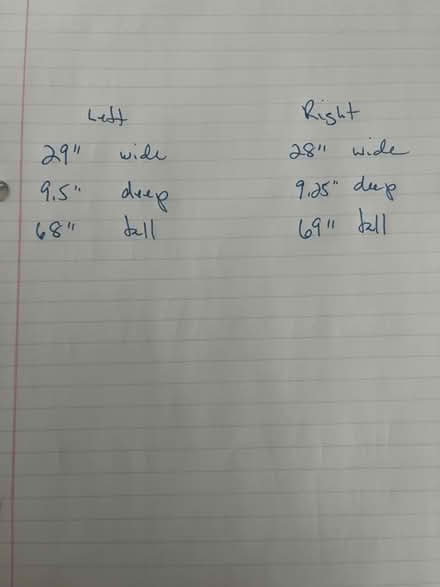 Left Right
29" wide 28" wide
9.5" deep 9.25" deep
68" tall 69" tall